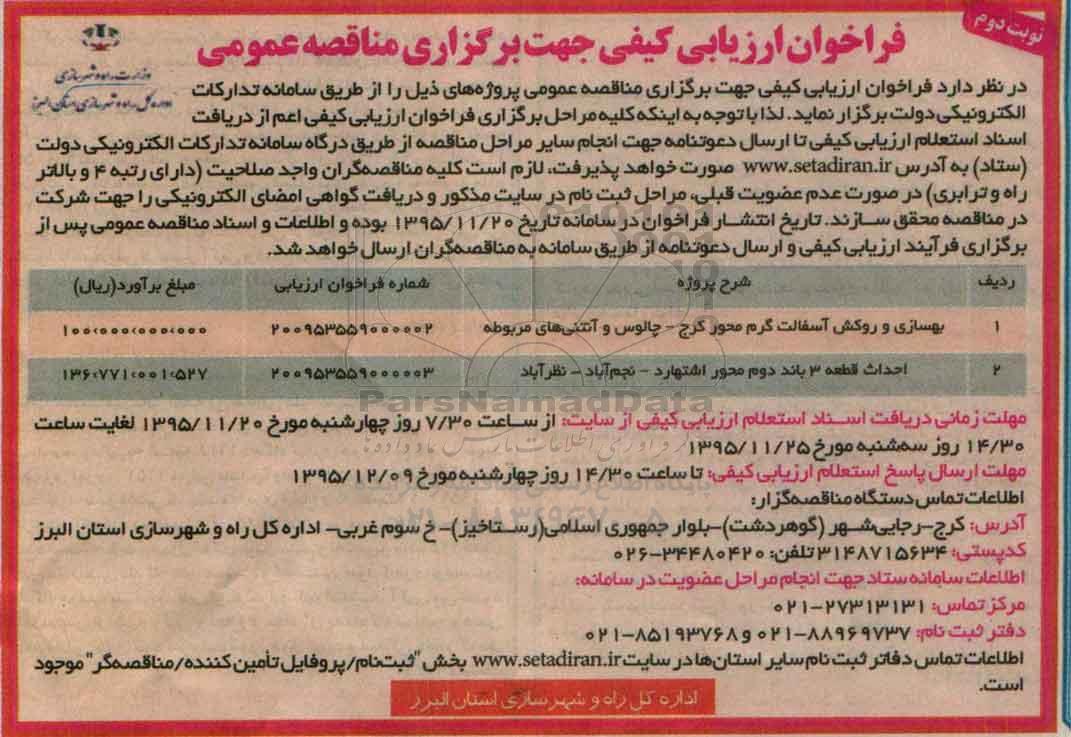 نوبت دوم
فراخوان ارزیابی کیفی جهت برگزاری مناقصه عمومی
وزارت راه و شهرسازی
اداره کل راه و شهرسازی استان البرز
در نظر دارد فراخوان ارزیابی کیفی جهت برگزاری مناقصه عمومی پروژه‌های ذیل را از طریق سامانه تدارکات
الکترونیکی دولت برگزار نماید. لذا با توجه به اینکه کلیه مراحل برگزاری فراخوان ارزیابی کیفی اعم از دریافت
اسناد استعلام ارزیابی کیفی تا ارسال دعوتنامه جهت انجام سایر مراحل مناقصه از طریق درگاه سامانه تدارکات الکترونیکی دولت
(ستاد) به آدرس www.setadiran.ir صورت خواهد پذیرفت، لازم است کلیه مناقصه‌گران واجد صلاحیت (دارای رتبه ۴ و بالاتر
راه و ترابری) در صورت عدم عضویت قبلی، مراحل ثبت نام در سایت مذکور و دریافت گواهی امضای الکترونیکی را جهت شرکت
در مناقصه محقق سازند. تاریخ انتشار فراخوان در سامانه تاریخ ۱۳۹۵/۱۱/۲۰ بوده و اطلاعات و اسناد مناقصه عمومی پس از
برگزاری فرآیند ارزیابی کیفی و ارسال دعوتنامه از طریق سامانه به مناقصه‌گران ارسال خواهد شد.
ردیف شرح پروژه شماره فراخوان ارزیابی مبلغ برآورد(ریال)
۱ بهسازی و روکش آسفالت گرم محور کرج - چالوس و آنتنی‌های مربوطه ۲۰۰۹۵۳۵۵۹۰۰۰۰۰۲ ۱۰۰،۰۰۰،۰۰۰،۰۰۰
۲ احداث قطعه ۳ باند دوم محور اشتهارد - نجم‌آباد - نظرآباد ۲۰۰۹۵۳۵۵۹۰۰۰۰۰۳ ۱۳۶،۷۷۱،۰۰۱،۵۲۷
ParsNamadData
مهلت زمانی دریافت اسناد استعلام ارزیابی کیفی از سایت: از ساعت ۷/۳۰ روز چهارشنبه مورخ ۱۳۹۵/۱۱/۲۰ لغایت ساعت
۱۴/۳۰ روز سه‌شنبه مورخ ۱۳۹۵/۱۱/۲۵
مهلت ارسال پاسخ استعلام ارزیابی کیفی: تا ساعت ۱۴/۳۰ روز چهارشنبه مورخ ۱۳۹۵/۱۲/۰۹
اطلاعات تماس دستگاه مناقصه‌گزار:
آدرس: کرج-رجایی‌شهر (گوهردشت)-بلوار جمهوری اسلامی(رستاخیز)- خ سوم غربی- اداره کل راه و شهرسازی استان البرز
کدپستی: ۳۱۴۸۷۱۵۶۳۴ تلفن: ۳۴۴۸۰۴۲۰-۰۲۶
اطلاعات سامانه ستاد جهت انجام مراحل عضویت در سامانه:
مرکز تماس: ۲۷۳۱۳۱۳۱-۰۲۱
دفتر ثبت نام: ۸۸۹۶۹۷۳۷-۰۲۱ و ۸۵۱۹۳۷۶۸-۰۲۱
اطلاعات تماس دفاتر ثبت نام سایر استان‌ها در سایت www.setadiran.ir بخش "ثبت‌نام/پروفایل تأمین کننده/مناقصه‌گر" موجود
است.
اداره کل راه و شهرسازی استان البرز